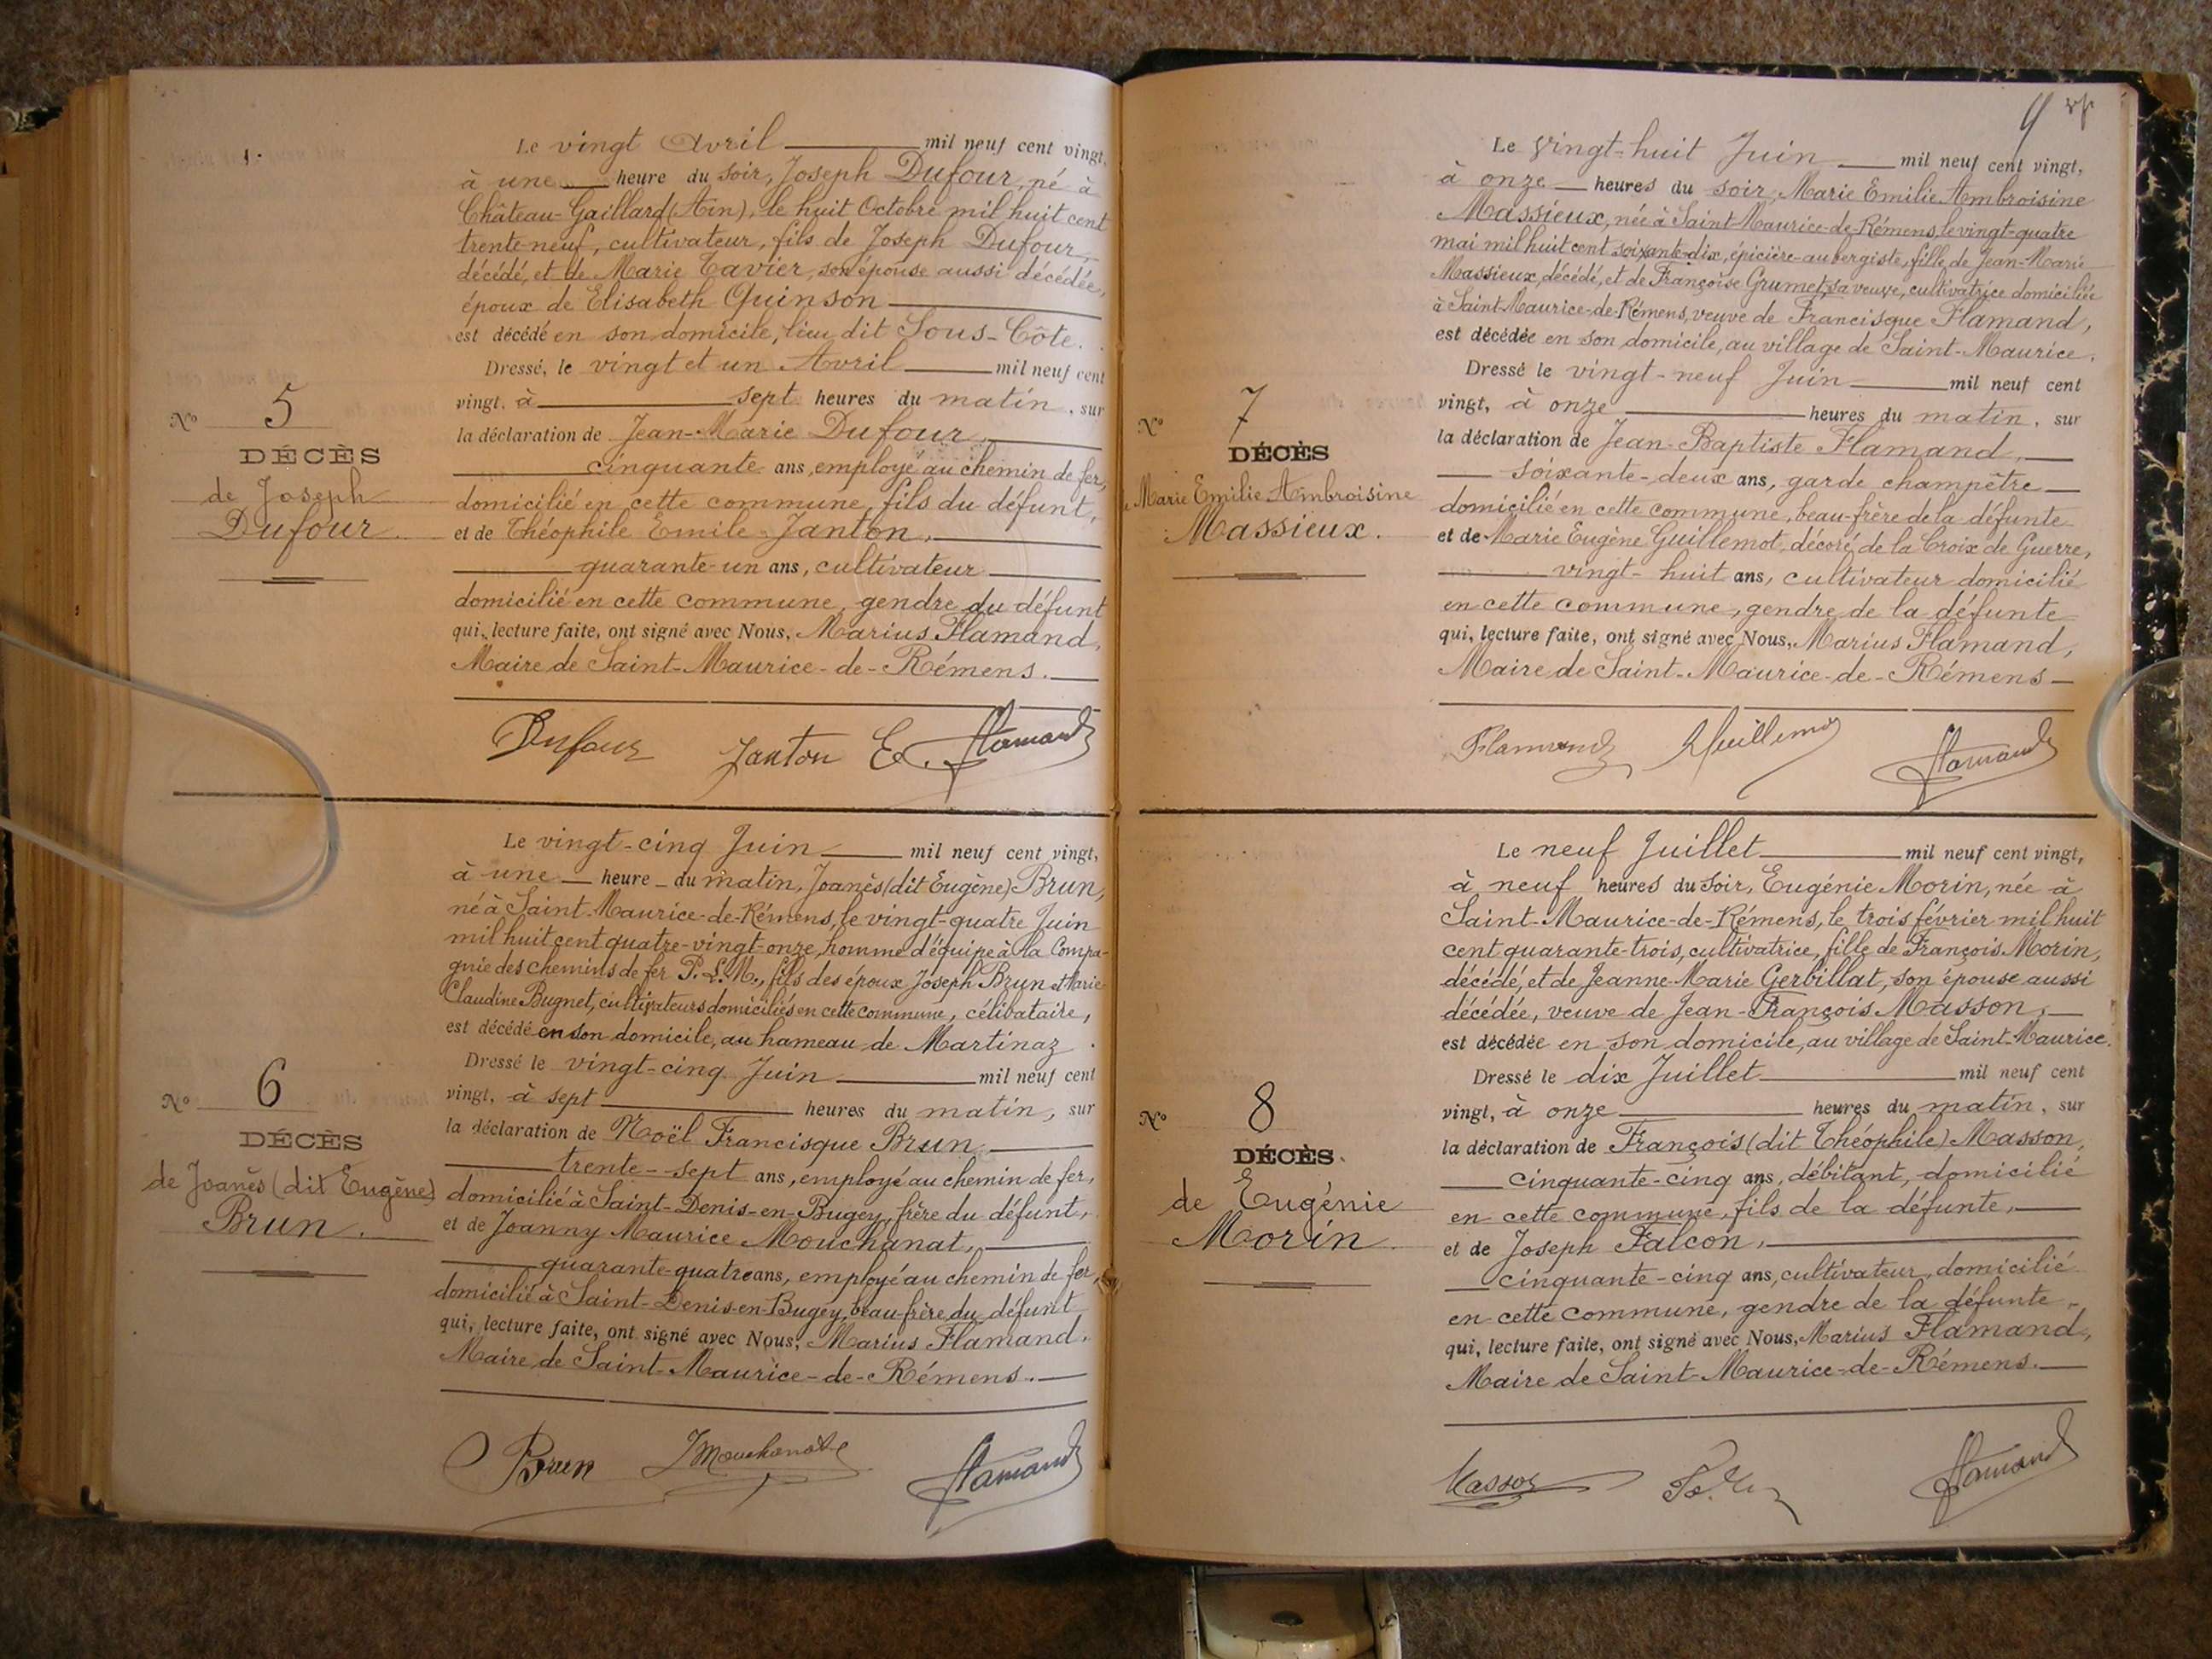 Le vingt Avril mil neuf cent vingt,
à une heure du soir, Joseph Dufour, né à
Château-Gaillard (Ain), le huit Octobre mil huit cent
trente-neuf, cultivateur, fils de Joseph Dufour,
décédé, et de Marie Tavier, son épouse aussi décédée,
époux de Elisabeth Quinson
est décédé en son domicile, lieu dit Sous-Côte.
Dressé, le vingt et un Avril mil neuf cent
vingt, à sept heures du matin, sur
la déclaration de Jean-Marie Dufour,
cinquante ans, employé au chemin de fer,
domicilié en cette commune, fils du défunt,
et de Théophile Emile Janton,
quarante-un ans, cultivateur
domicilié en cette commune, gendre du défunt
qui, lecture faite, ont signé avec Nous, Marius Flamand,
Maire de Saint-Maurice-de-Rémens.
Nº 5
DÉCÈS
de Joseph
Dufour
Dufour Janton E. Flamand
Le vingt-cinq Juin mil neuf cent vingt,
à une heure du matin, Joanès (dit Eugène) Brun,
né à Saint-Maurice-de-Rémens, le vingt-quatre Juin
mil huit cent quatre-vingt-onze, homme d'équipe à la Compa-
gnie des chemins de fer P.L.M., fils des époux Joseph Brun et Marie
Claudine Bugnet, cultivateurs domiciliés en cette commune, célibataire,
est décédé en son domicile, au hameau de Martinaz.
Dressé le vingt-cinq Juin mil neuf cent
vingt, à sept heures du matin, sur
la déclaration de Noël Francisque Brun
trente-sept ans, employé au chemin de fer,
domicilié à Saint-Denis-en-Bugey, frère du défunt,
et de Joanny Maurice Mouchanat,
quarante-quatre ans, employé au chemin de fer,
domicilié à Saint-Denis-en-Bugey, beau-frère du défunt
qui, lecture faite, ont signé avec Nous, Marius Flamand.
Maire de Saint-Maurice-de-Rémens.
Nº 6
DÉCÈS
de Joanès (dit Eugène)
Brun.
Brun JMouchanat Flamand
9
Le vingt-huit Juin mil neuf cent vingt,
à onze heures du soir, Marie Emilie Ambroisine
Massieux, née à Saint-Maurice-de-Rémens, le vingt-quatre
mai mil huit cent soixante-dix, épicière-aubergiste, fille de Jean-Marie
Massieux, décédé, et de Françoise Grumet, sa veuve, cultivatrice domiciliée
à Saint-Maurice-de-Rémens, veuve de Francisque Flamand,
est décédée en son domicile, au village de Saint-Maurice.
Dressé le vingt-neuf Juin mil neuf cent
vingt, à onze heures du matin, sur
la déclaration de Jean-Baptiste Flamand,
soixante-deux ans, garde champêtre
domicilié en cette commune, beau-frère de la défunte
et de Marie Eugène Guillemot, décoré de la Croix de Guerre,
vingt-huit ans, cultivateur domicilié
en cette commune, gendre de la défunte
qui, lecture faite, ont signé avec Nous, Marius Flamand,
Maire de Saint-Maurice-de-Rémens
Nº 7
DÉCÈS
de Marie Emilie Ambroisine
Massieux.
Flamand Guillemot Flamand
Le neuf Juillet mil neuf cent vingt,
à neuf heures du soir, Eugénie Morin, née à
Saint-Maurice-de-Rémens, le trois février mil huit
cent quarante-trois, cultivatrice, fille de François Morin,
décédé, et de Jeanne-Marie Gerbillat, son épouse aussi
décédée, veuve de Jean-François Masson,
est décédée en son domicile, au village de Saint-Maurice.
Dressé le dix Juillet mil neuf cent
vingt, à onze heures du matin, sur
la déclaration de François (dit Théophile) Masson,
cinquante-cinq ans, débitant, domicilié
en cette commune, fils de la défunte,
et de Joseph Falcon,
cinquante-cinq ans, cultivateur, domicilié
en cette commune, gendre de la défunte
qui, lecture faite, ont signé avec Nous, Marius Flamand,
Maire de Saint-Maurice-de-Rémens.
Nº 8
DÉCÈS.
de Eugénie
Morin
Masson Flamand